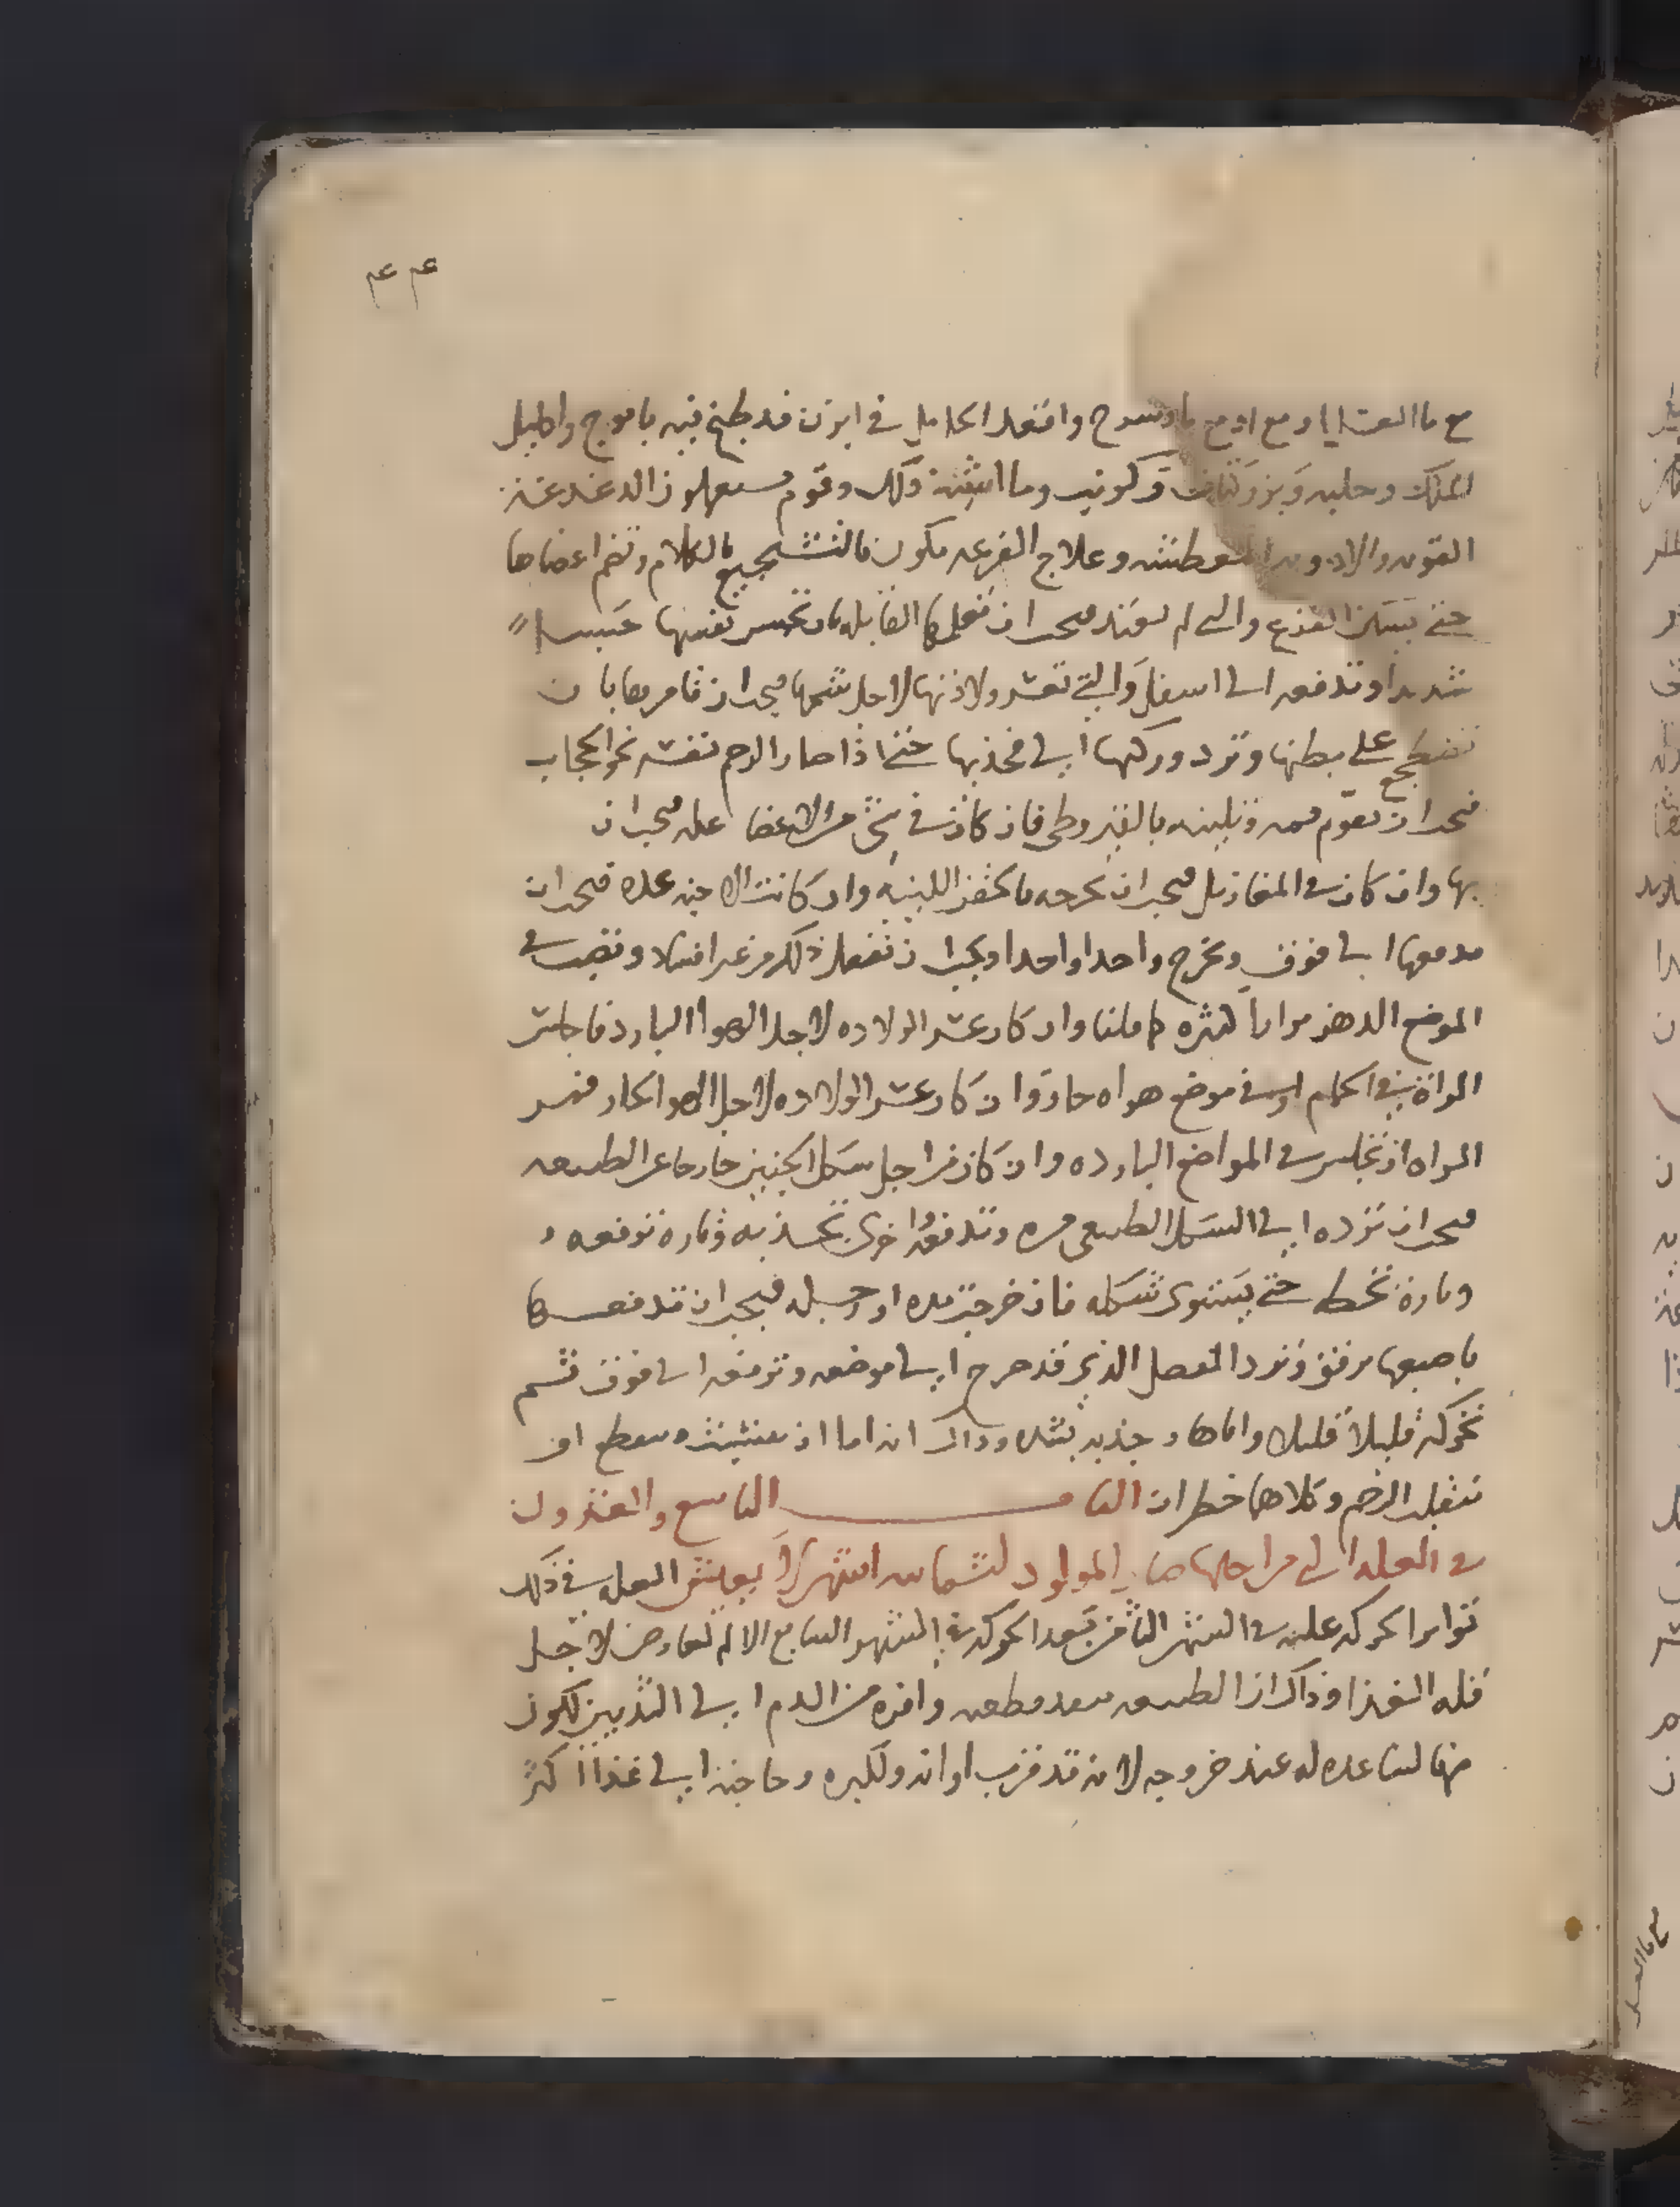 ٤٤
مع ما العسل او مع ادمع وانقعد الحامل في ابزن قد طبخ فيه بابونج واكليل
الملك وحلبه وبزر كتان وكرنب وما اشبه ذلك وقوم يستعملون الدغدغه
القويه والادويه المعطشه وعلاج الفزعه يكون بالتشجيع بالكلام وتضم اعضاها
حتى يسكن الفزع والتي لم تعتد فيجب ان تعلمها القابله بان تحبس نفسها حبسا
شديدا وتدفعه الى اسفل والتي تعسر ولادتها لاجل شحمها فيجب ان تامرها بان
تنبطح على بطنها وترد وركها الى فخذيها حتى اذا صار الرحم نفسه نحو الحجاب
فيجب ان تقوم فمه وتلينه بالقيروطي فان كان في شي من الاعضا عله فيجب ان
بها وان كان في المقا زبل فيجب ان تخرجه بالحقن اللينه وان كانت الاجنه عده فيجب ان
تدفعها الى فوق وتخرج واحدا واحدا ويجب ان تفعل ذلك من غير وتصب في
الموضع الدهن مرارا كثره كما قلنا وان كان عسر الولاده لاجل الهوا البارد فاجلس
المراة في الحمام او في موضع هواه حار وان كان عسر الولاده لاجل الهوا الحار فمر
المراه ان تجلس في المواضع البارده وان كان من اجل شكل الجنين خارجا عن الطبيعه
فيجب ان ترده الى الشكل الطبيعي مره وتدفعه اخرى تجذبه وتاره ترفعه و
وتارة تحطه حتى يستوى شكله فان خرجت يده او رجله فيجب ان تدفعها
باصبعها برفق وترد المفصل الذي قد خرج الى موضعه وترفعه الى فوق ثم
تحركه قليلا قليلا واياها و جذبه بشده وذاك انه اما ان وينقطع او
تنقلب الرحم وكلاهما خطران الباب التاسع والعشرون
في العله التي من اجلها صار المولود لثمانيه اشهر لا يعيش العله في ذلك
تواتر الحركه عليه في الشهر الثامن بعد الحركه في الشهر السابع الالم العارض لاجل
قله الغذا وذاك ان الطبيعه تبعد قطعه وافره من الدم الى الثديين لكون
منها لتساعده له عند خروجه لانه قد قرب اوانه ولكبره وحاجته الى غذا اكثر